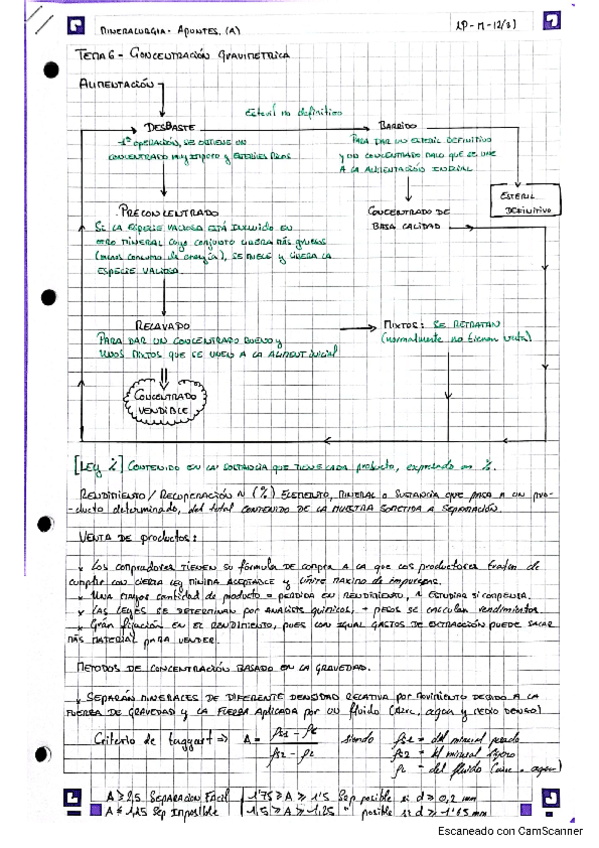 MINERALURGIA - APUNTES. (A)
LP-M-12/31
TEMA 6 - CONCENTRACIÓN GRAVIMETRICA
ALIMENTACIÓN
Esteril no definitivo
DESBASTE
BARRIDO
1ª operación, SE OBTIENE UN
CONCENTRADO MUY IMPURO y ESTERILES RICOS
PARA DAR UN ESTERIL DEFINITIVO
y UN CONCENTRADO MALO QUE SE UNE
A LA ALIMENTACIÓN INICIAL
ESTERIL
DEFINITIVO
PRECONCENTRADO
CONCENTRADO DE
BAJA CALIDAD
SI LA ESPECIE VALIOSA ESTÁ INCLUIDO EN
OTRO MINERAL cuyo conjunto LIBERA MÁS gruesos
(menos consumo de energía), SE MUELE y LIBERA LA
ESPECIE VALIOSA.
RELAVADO
MIXTOS: SE RETRATAN
(normalmente no tienen venta)
PARA DAR UN CONCENTRADO BUENO y
UNOS MIXTOS QUE SE UNEN A LA ALIMENT. INICIAL
CONCENTRADO
VENDIBLE
[LEY %] CONTENIDO EN LA SUSTANCIA QUE TIENE CADA producto, expresado en %.
RENDIMIENTO / RECUPERACIÓN R (%) ELEMENTO, MINERAL o SUSTANCIA QUE PASA A UN pro-
-ducto determinado, del total CONTENIDO DE LA MUESTRA SOMETIDA A SEPARACIÓN.
VENTA DE productos:
x Los compradores TIENEN SU fórmula DE COMPRA A LA QUE LOS productores tratan de
cumplir con CIERTA LEY MINIMA ACEPTABLE y LÍMITE MAXIMO DE impurezas.
x UNA MAYOR CANTIDAD DE producto = PERDIDA EN RENDIMIENTO, A ESTUDIAR SI COMPENSA.
x LAS LEYES SE DETERMINAN por ANALISIS quimicos, + PESOS SE CALCULAN rendimientos.
x Gran fijación EN EL RENDIMIENTO, pues con igual GASTOS DE EXTRACCIÓN PUEDE SACAR
MÁS MATERIAL PARA VENDER.
METODOS DE CONCENTRACIÓN BASADO EN LA GRAVEDAD.
x SEPARAN MINERALES DE DIFERENTE DENSIDAD RELATIVA por movimiento DEBIDO A LA
FUERZA DE GRAVEDAD y LA FUERZA APLICADA por UN fluido (Aire, agua y medio denso)
Criterio de taggart => A = (ρs1 - ρL) / (ρs2 - ρL) siendo ρs1 = del mineral pesado
ρs2 = del mineral ligero
ρL - del fluido (aire - agua)
A ≥ 2,5 SEPARACION FACIL | 1'75 ≥ A ≥ 1'5 Sep posible si d ≥ 0,2 mm
A ≤ 1,25 Sep IMPOSIBLE | 1,5 ≥ A ≥ 1,25 " posible si d ≥ 1'65 mm
Escaneado con CamScanner